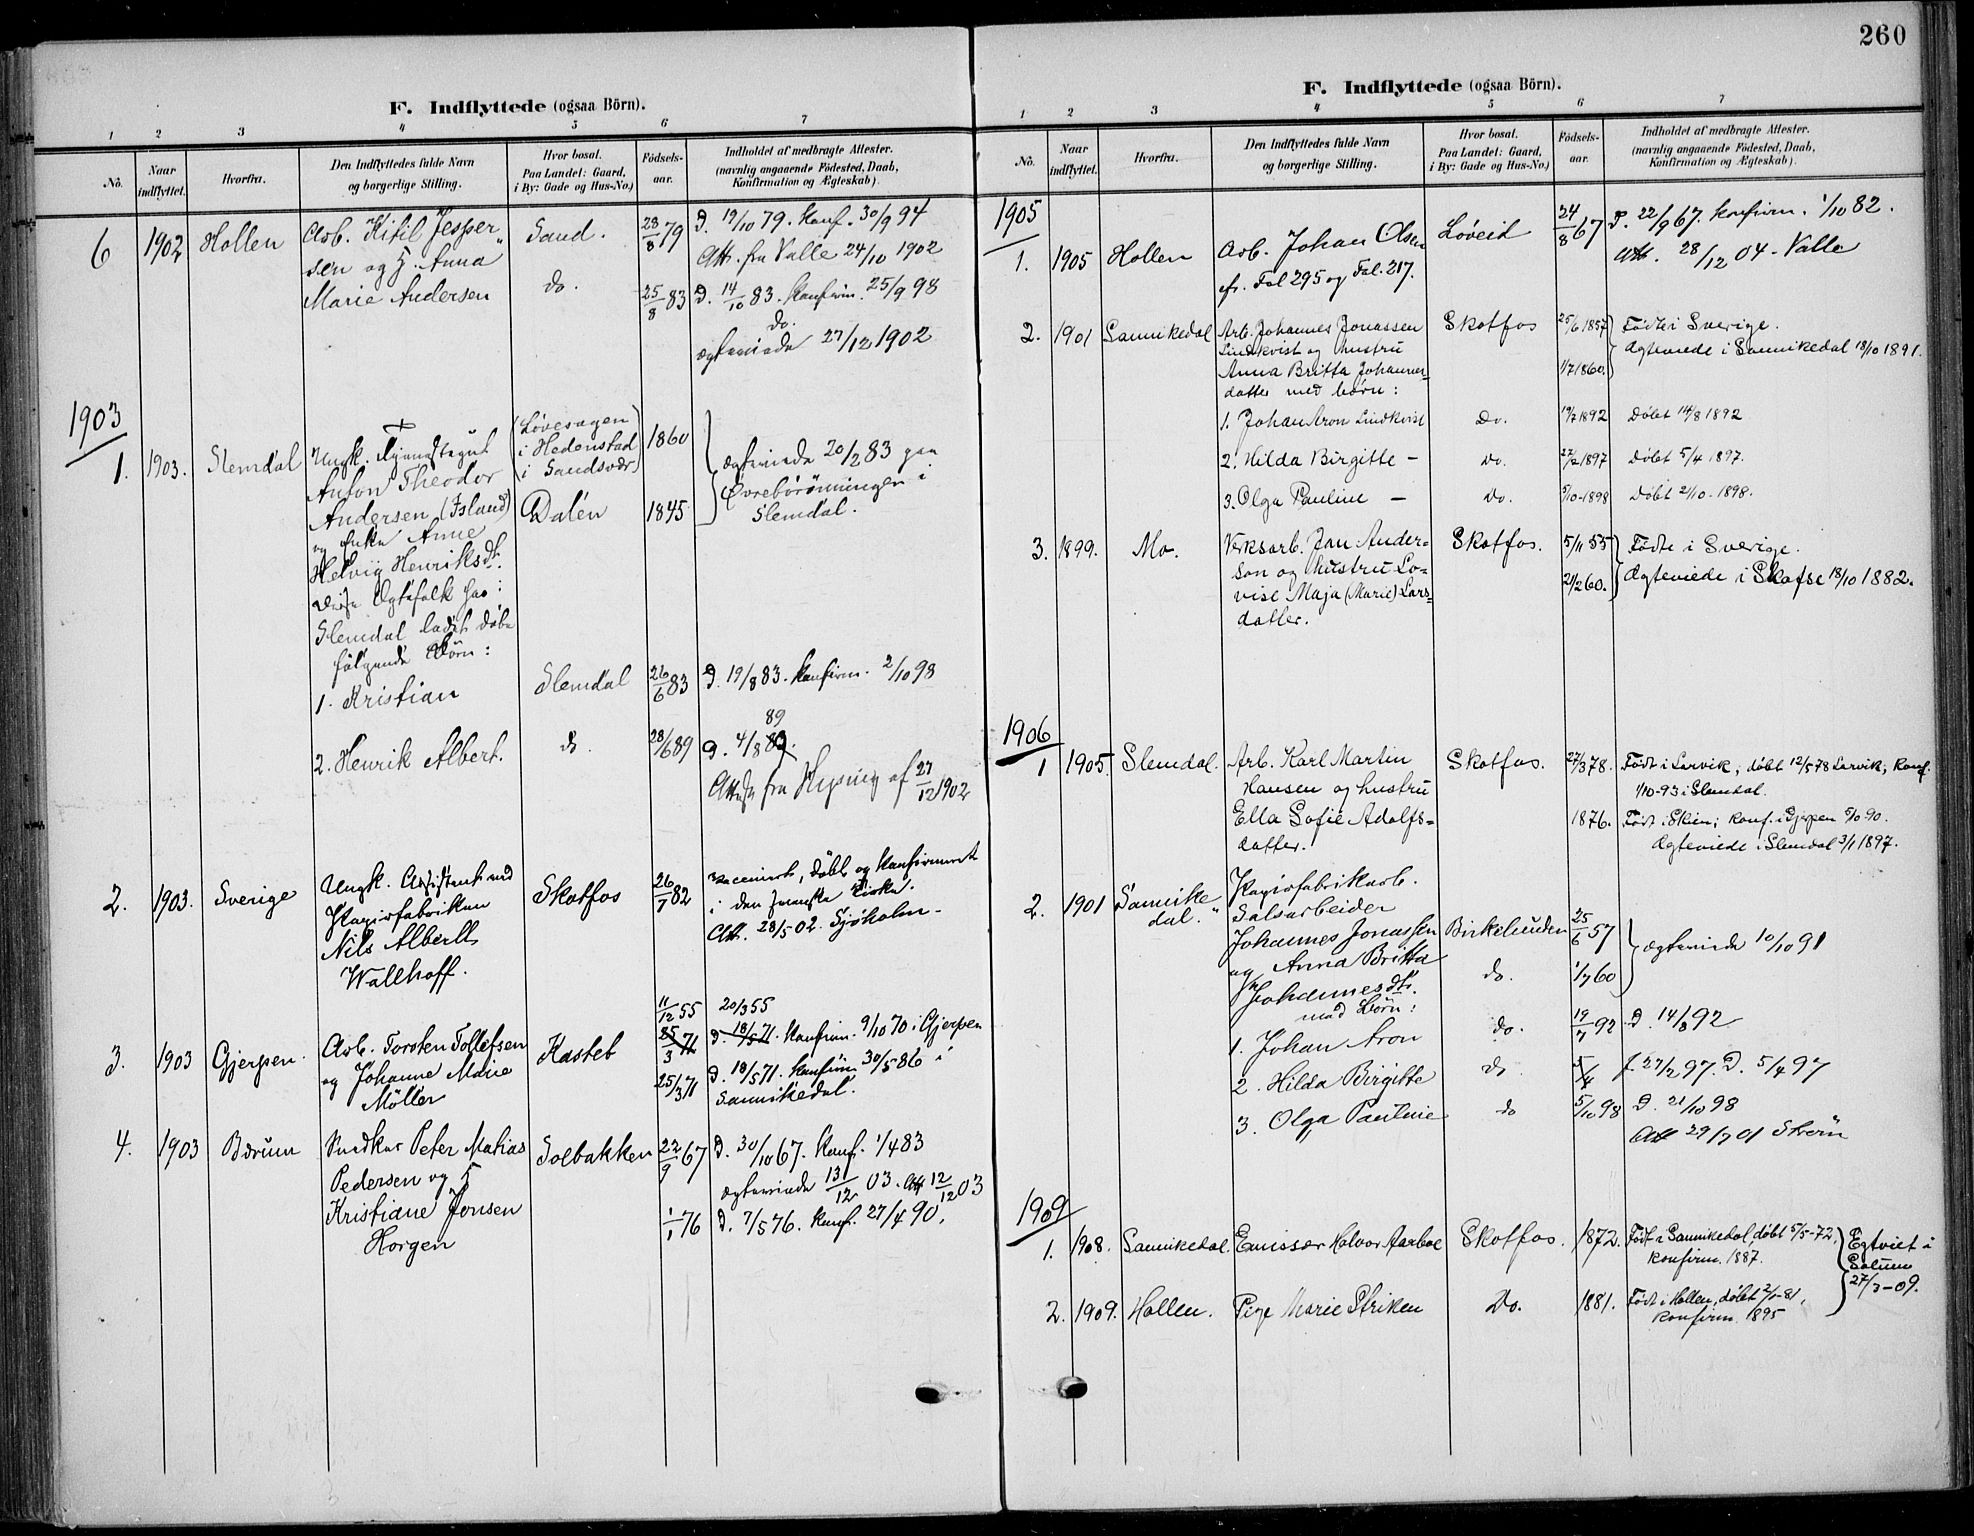 F. Indflyttede (ogsaa Börn).
1 2 3 4 5 6 7
No. Naar indflyttet. Hvorfra. Den Indflyttedes fulde Navn og borgerlige Stilling. Hvor bosat. Paa Landet: Gaard, i By: Gade og Hus-No.) Födsels-aar. Indholdet af medbragte Attester. (navnlig angaaende Födested, Daab, Konfirmation og Ægteskab).
6 1902 Hollen Arb. Kitil Jesper Sand. 28/8 79 D. 19/10 79. Konf. 30/9 94
sen og h. Anna Att. fra Valle 24/10 1902
Marie Andersen do. 25/8 83 D. 14/10 83. Konfirm. 25/9 98
do.
ægteviede 27/12 1902
1903
1. 1903. Slemdal Ungk. (Løvesagen 1860
Anton Theodor i Hedenstad ægteviede 20/2 83 paa
Andersen (Island) i Sandsvær) Øvrebörönningen i
og Enke Anne Dalén 1845 Slemdal.
Helvig Henriksdt.
Disse Ægtefolk har i
Slemdal ladet døbe
følgende Börn:
1. Kristian Slemdal 26/6 83 D. 19/8 83. Konfirm. 2/10 98
89
2. Henrik Albert. do. 28/6 89 D. 4/8
Attest fra 27/12 1902
2. 1903. Sverige Ungk. Assistent ved Skotfos 26/7 82 Vaccineret, døbt og konfirmeret
Papirfabriken i den svenske Kirke.
Nils Albert Att. 28/5 02. Sjöholm.
Wallhoff.
11/12 55 20/3 55
3. 1903 Gjerpen. Arb. Torsten Tollefsen Kastet 25/3 71 D. 18/5 71. Konfirm. 9/10 70 i Gjerpen
og Johanne Marie 25/3 71 D. 18/5 71. Konfirm. 30/5 86 i
Möller Sannikedal.
4. 1903 Bærum Snedker Peter Matias Solbakken 22/9 67 D. 30/10 67. Konf. 1/4 83
Pedersen og h. ægteviede 131/12 03. Att 12/12 03
Kristiane Jonsen 1/1 76 D. 7/5 76. Konf. 27/4 90.
Horgen
260
F. Indflyttede (ogsaa Börn).
1 2 3 4 5 6 7
No. Naar indflyttet. Hvorfra. Den Indflyttedes fulde Navn og borgerlige Stilling. Hvor bosat. Paa Landet: Gaard, i By: Gade og Hus-No.) Födsels-aar. Indholdet af medbragte Attester. (navnlig angaaende Födested, Daab, Konfirmation og Ægteskab).
1905
1. 1905 Hollen Arb. Johan Olsen Løveid 24/8 67 D. 22/9 67. Konfirm. 1/10 82.
cfr. Fol 295 og Fol. 217. Att. 28/12 04. Valle
2. 1901 Sannikedal Arb. Johannes Jonassen Skotfos 25/6 1857 Födte i Sverige.
Lindkvist og hustru Ægteviede i Sannikedal 18/10 1891.
Anna Britta Johannes- 1/7 1860.
datter med börn:
1. Johan Aron Lindkvist Do. 19/7 1892 Döbt 14/8 1892
2. Hilda Birgitte – Do. 27/2 1897 Döbt 5/4 1897.
3. Olga Pauline – Do. 5/10-1898 Döbt 2/10-1898.
3. 1899. Mo. Verksarb. Jan Ander- Skotfos. 5/11 55 Födte i Sverige.
son og hustru Lo- 21/2 60. Ægteviede i Skafse 18/10 1882.
vise Maja (Marie) Lars-
datter.
1906
1 1905. Slemdal. Arb. Karl Martin Skotfos. 27/3 78. Födt i Larvik, döbt 12/5 78 Larvik, Konf.
Hansen og hustru 1/10-93 i Slemdal.
Ella Sofie Adolfs- 1876. Födt i Skien; Konf. i Gjerpen 5/10 90.
datter. Ægteviede i Slemdal 3/1 1897.
2. 1901 Sannike Papirfabrikarb.
dal. Salsarbeider
Johannes Jonassen Birkelunden 25/6 57 ægteviede 10/10 91
og Anna Britta do. 1/7 60
Johannesdt.
med Börn:
1. Johan Aron do. 19/7 92 D. 14/8 92
2. Hilda Birgitte do. 5/4 f. 27/2 97. D. 5/4 97
3. Olga Pauline do 5/10 98 D. 21/10 98
Att 29/7 01 Ström
1909
1. 1908. Sannikedal. Emissær Halvor Aarboe Skotfos. 1872. Födt i Sannikedal, döbt 5/5-72, Egtviet i
konfirm. 1887. Solum
27/3-09.
2. 1909. Hollen. Pige Marie Striken Do. 1881. Födt i Hollen, döbt 2/1-81,
konfirm. 1895